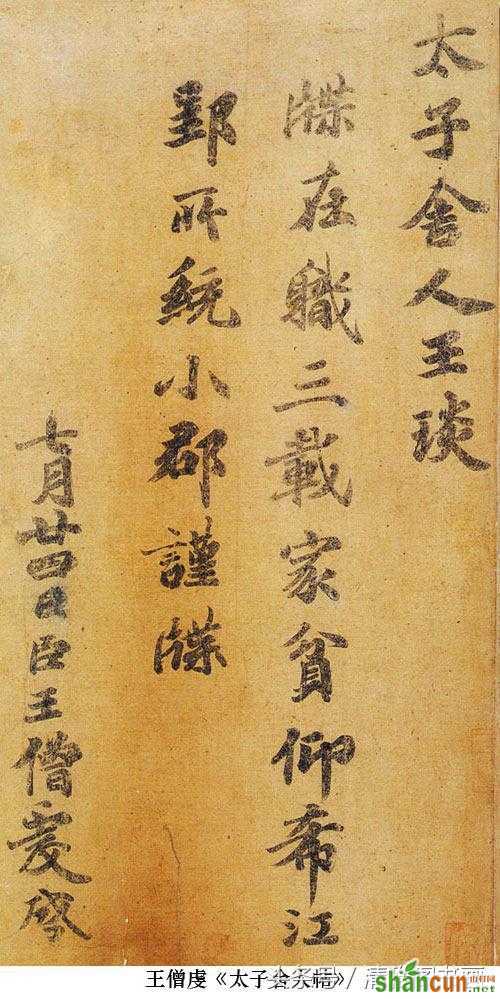 太子舍人王琰
牒在職三載家貧仰希江
郢所統小郡謹牒
七月廿四日臣王僧虔啓
王僧虔《太子舍人帖》
shancun
.net